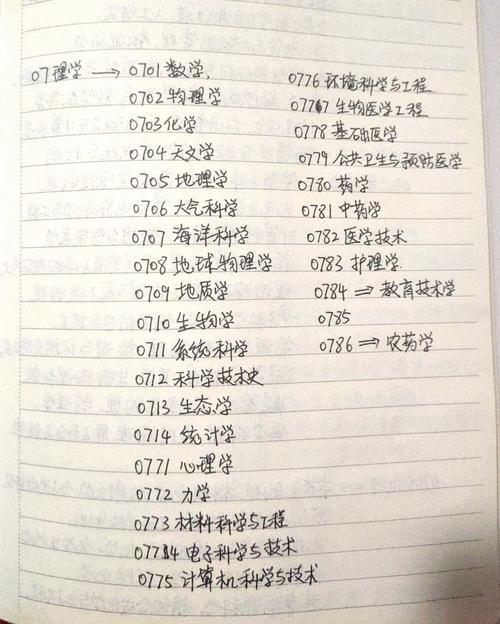 07理学 → 0701数学,
0702物理学
0703化学
0704天文学
0705地理学
0706大气科学
0707海洋科学
0708地球物理学
0709地质学
0710生物学
0711系统科学
0712科学技术史
0713生态学
0714统计学
0771心理学
0772力学
0773材料科学与工程
0774电子科学与技术
0775计算机科学与技术
0776环境科学与工程
0777生物医学工程
0778基础医学
0779公共卫生与预防医学
0780药学
0781中药学
0782医学技术
0783护理学
0784 ⇒ 教育技术学
0785
0786 ⇒ 农药学